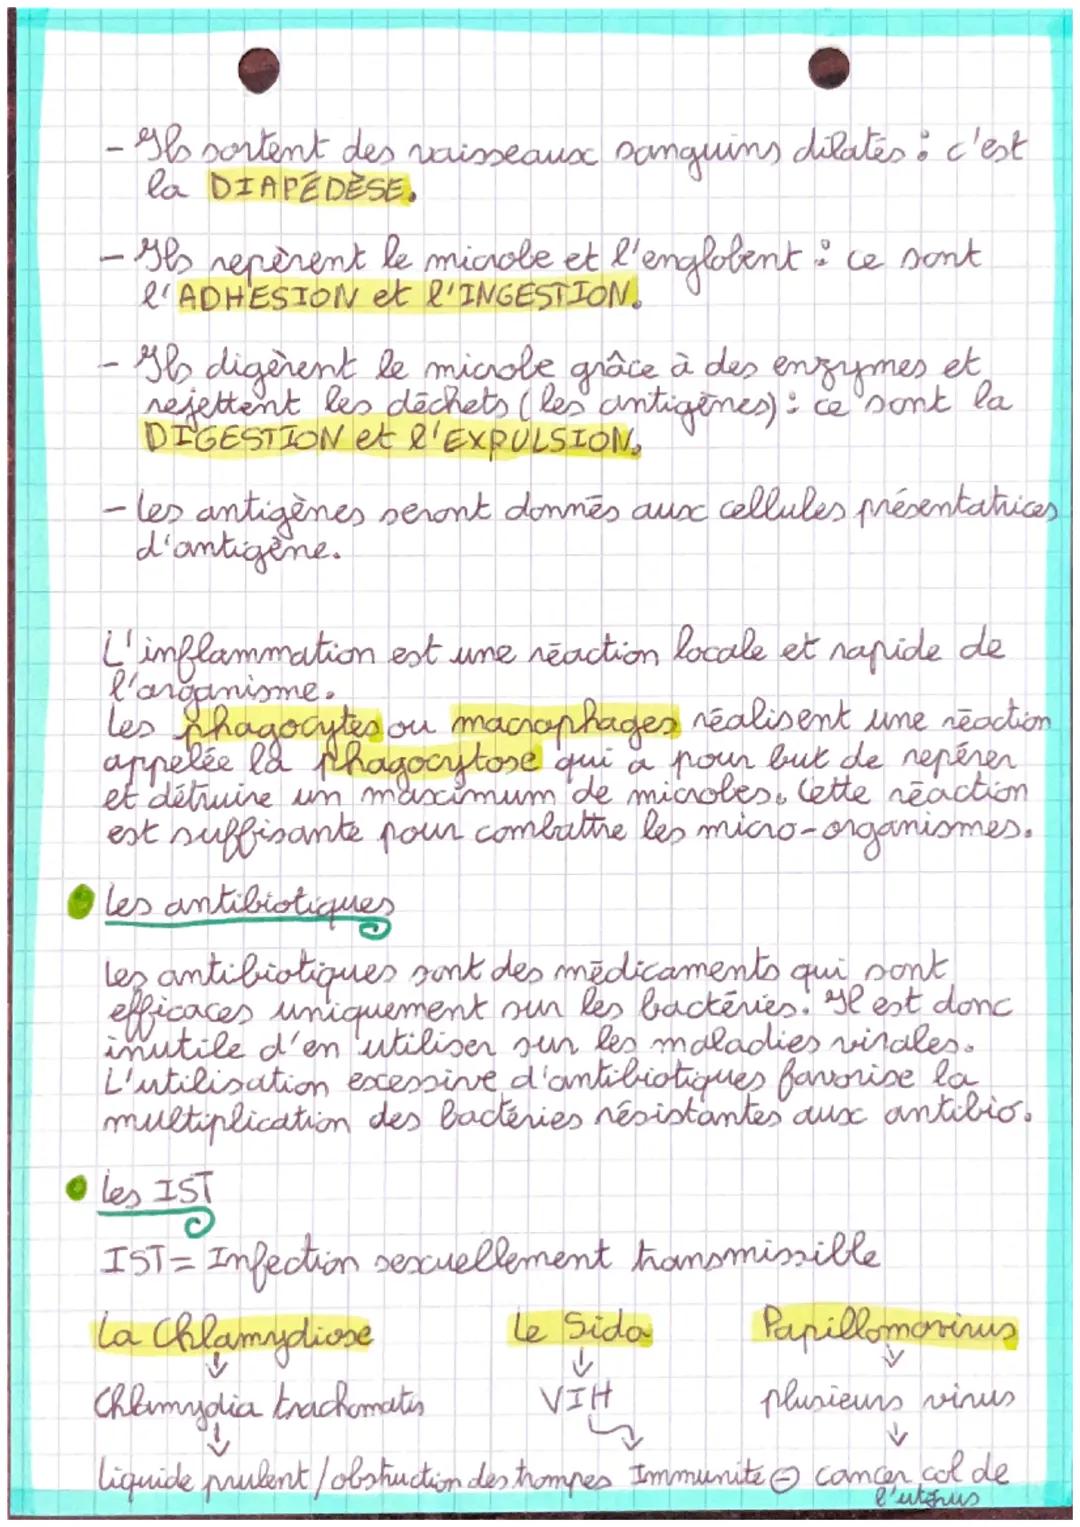 - Ils sortent des vaisseaux sanguins dilatés : c'est
la DIAPÉDÈSE.
- Ils repèrent le microbe et l'englobent : ce sont
l'ADHESION et l'INGESTION.
- Ils digèrent le microbe grâce à des enzymes et
rejettent les déchets (les antigènes) : ce sont la
DIGESTION et l'EXPULSION.
- Les antigènes seront donnés aux cellules présentatrices
d'antigène.
L'inflammation est une réaction locale et rapide de
l'organisme.
Les phagocytes ou macrophages réalisent une réaction
appelée la phagocytose qui a pour but de repérer
et détruire un maximum de microbes. Cette réaction
est suffisante pour combattre les micro-organismes.
Les antibiotiques
Les antibiotiques sont des médicaments qui sont
efficaces uniquement sur les bactéries. Il est donc
inutile d'en utiliser sur les maladies virales.
L'utilisation excessive d'antibiotiques favorise la
multiplication des bactéries résistantes aux antibio.
Les IST
IST = Infection sexuellement transmissible
La Chlamydiose Le Sida Papillomavirus
↓ ↓ ↓
Chlamydia trachomatis VIH plusieurs virus
↓ ↓ ↓
liquide prulent / obstruction des trompes Immunité ⊖ cancer col de
l'utérus